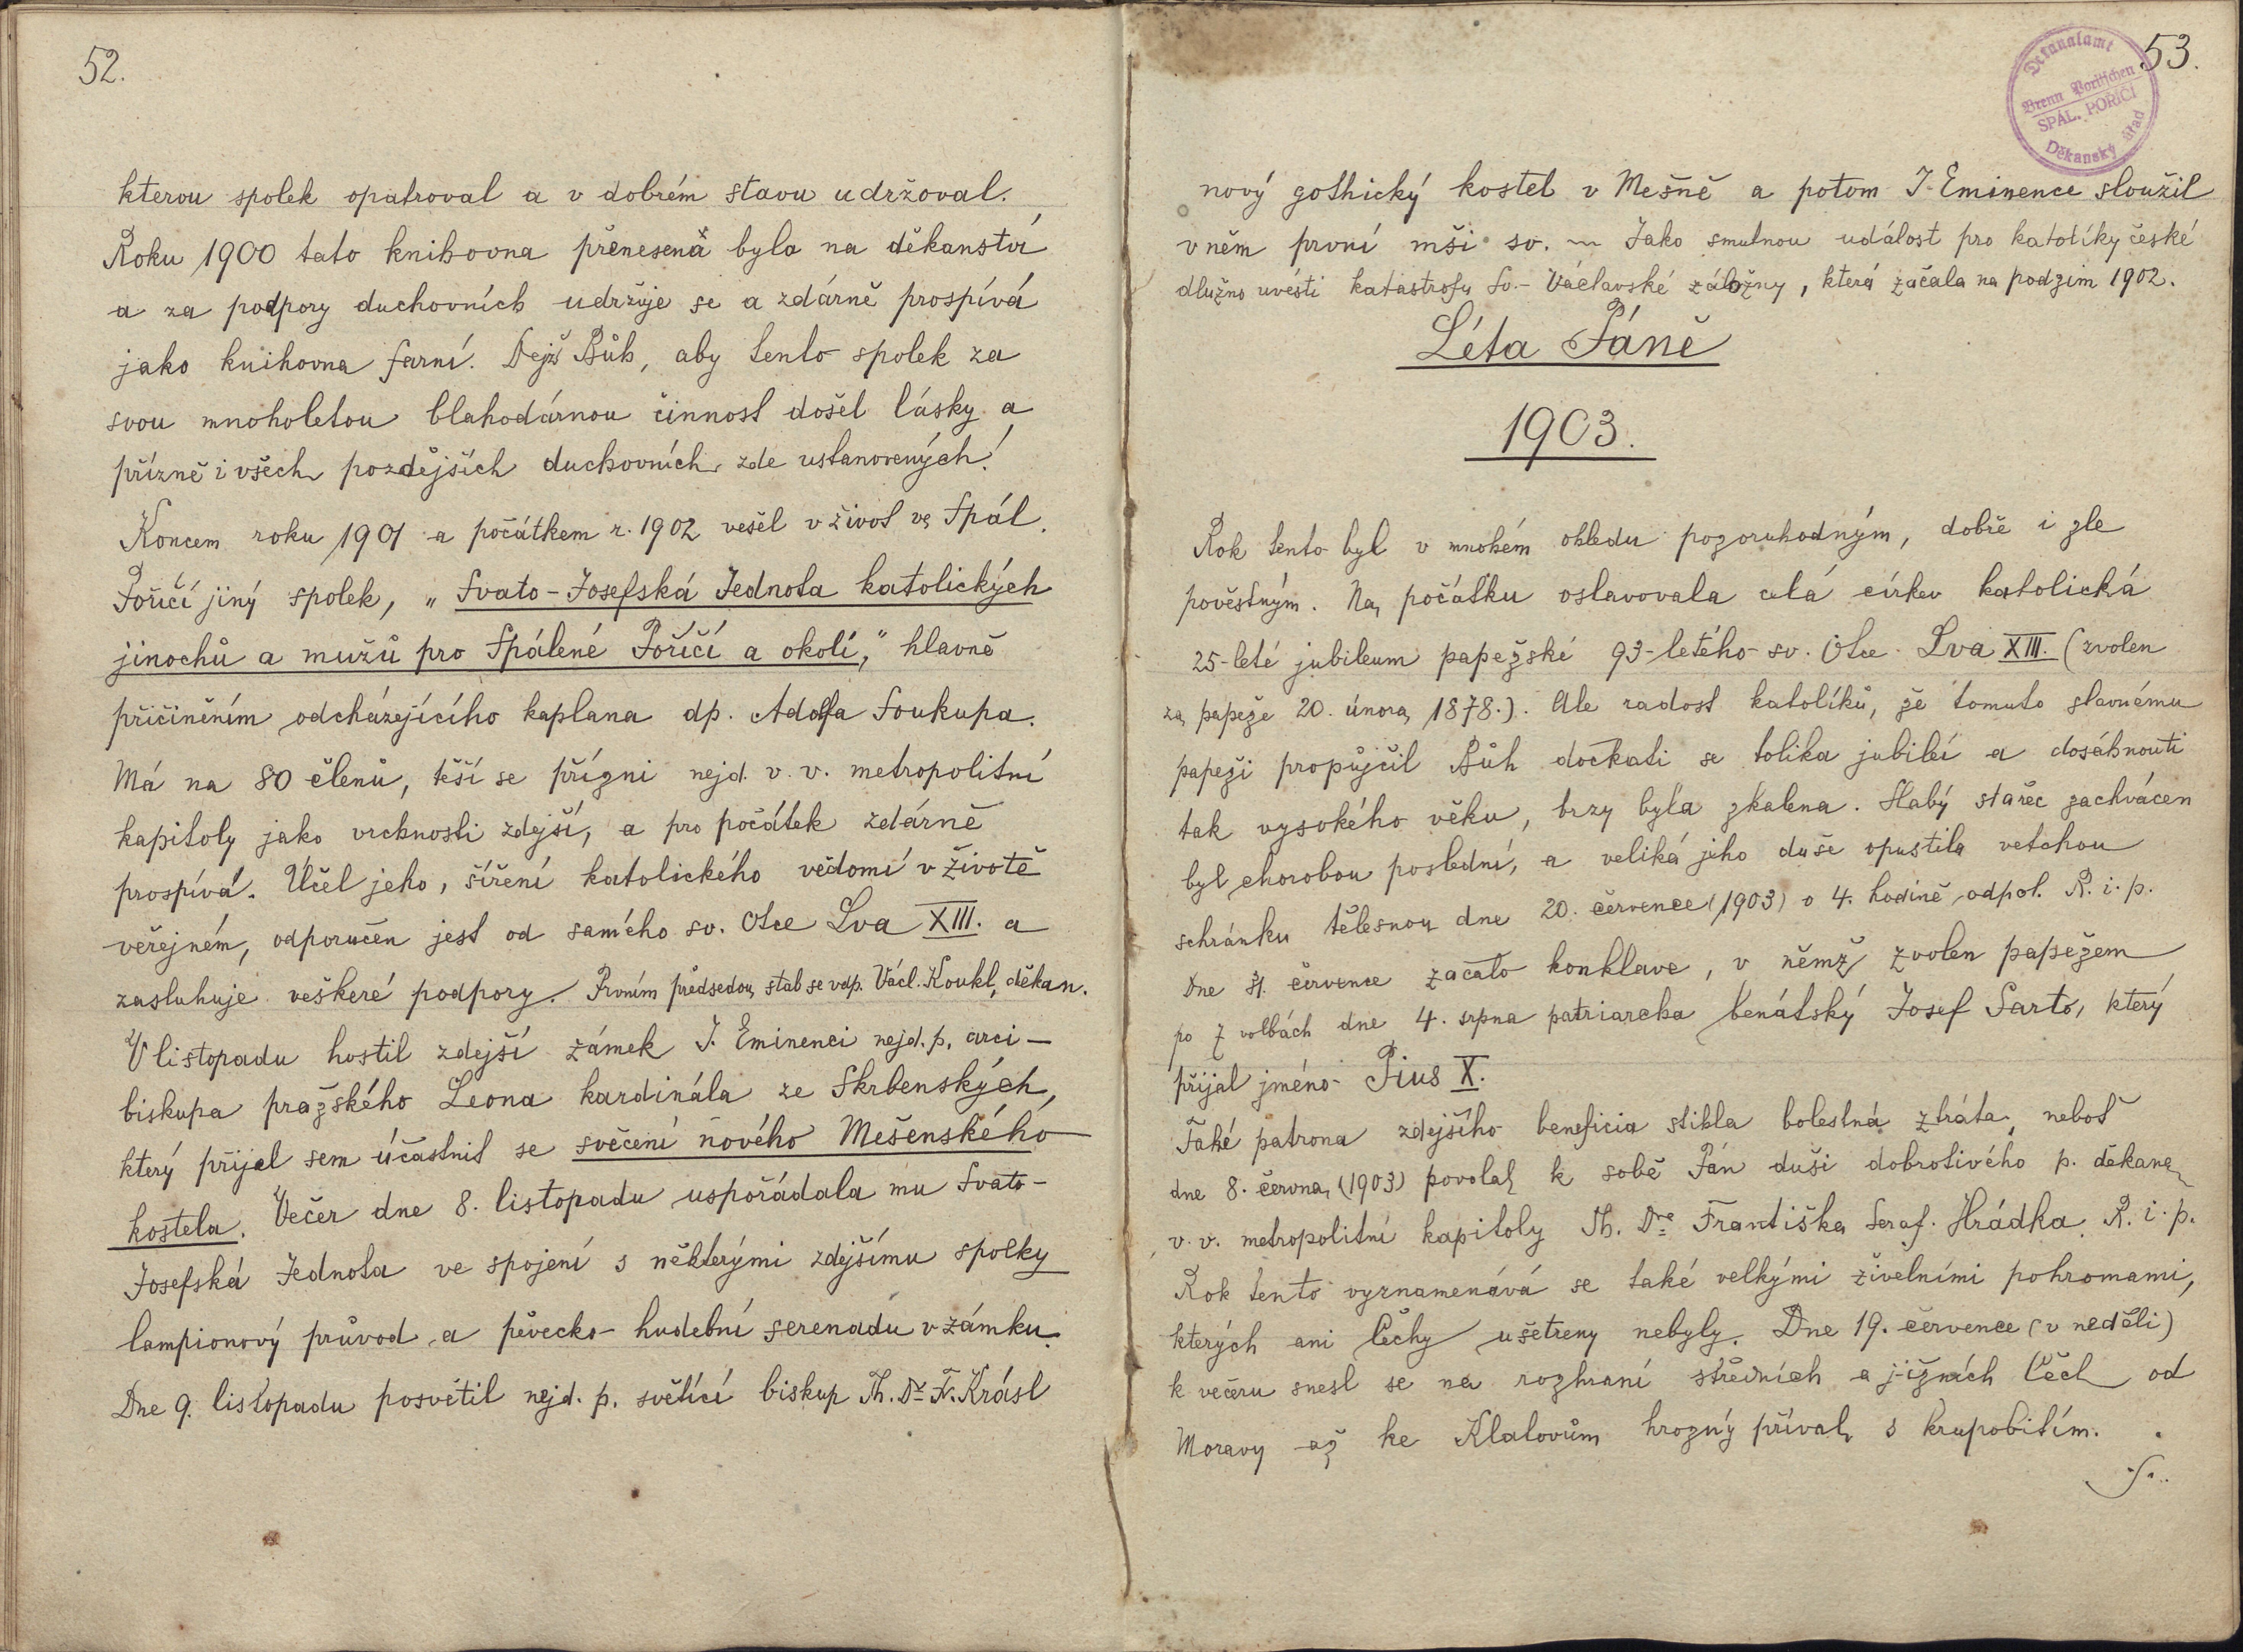 52.
kterou spolek opatroval a v dobrém stavu udržoval.
Roku 1900 tato knihovna přenesena byla na děkanství
a za podpory duchovních udržuje se a zdárně prospívá
jako knihovna farní. Dejž Bůh, aby tento spolek za
svou mnoholetou blahodárnou činnost došel lásky a
přízně i všech pozdějších duchovních zde ustanovených!
Koncem roku 1901 a počátkem r. 1902 vešel v život ve Spál.
Poříčí jiný spolek, „Svato-Josefská Jednota katolických
jinochů a mužů pro Spálené Poříčí a okolí," hlavně
přičiněním odcházejícího kaplana dp. Adolfa Soukupa.
Má na 80 členů, těší se přízni nejd. v. v. metropolitní
kapitoly jako vrchnosti zdejší, a pro počátek zdárně
prospívá. Účel jeho, šíření katolického vědomí v životě
veřejném, odporučen jest od samého sv. Otce Lva XIII. a
zasluhuje veškeré podpory. Prvním předsedou stal se vdp. Václ. Koukl, děkan.
V listopadu hostil zdejší zámek J. Eminenci nejd. p. arci-
biskupa pražského Leona kardinála ze Skrbenských,
který přijel sem účastnit se svěcení nového Mešenského
kostela. Večer dne 8. listopadu uspořádala mu Svato-
Josefská Jednota ve spojení s některými zdejšímu spolky
lampionový průvod a pěvecko-hudební serenadu v zámku.
Dne 9. listopadu posvětil nejd. p. světící biskup Th. Dr. F. Krásl
53.
Dekanalamt
Brenn Poritschen
SPÁL. POŘÍČÍ
Děkanský úřad
nový gothický kostel v Mešně a potom J. Eminence sloužil
v něm první mši sv. ~ Jako smutnou událost pro katolíky české
dlužno uvésti katastrofu Sv.-Václavské záložny, která začala na podzim 1902.
Léta Páně
1903.
Rok tento byl v mnohém ohledu pozoruhodným, dobře i zle
pověstným. Na počátku oslavovala celá církev katolická
25-leté jubileum papežské 93-letého sv. Otce Lva XIII. (zvolen
za papeže 20. února 1878.). Ale radost katolíků, že tomuto slavnému
papeži propůjčil Bůh dočkati se tolika jubileí a dosáhnouti
tak vysokého věku, brzy byla zkalena. Slabý stařec zachvácen
byl chorobou poslední, a veliká jeho duše opustila vetchou
schránku tělesnou dne 20. července (1903) o 4. hodině odpol. R. i. p.
Dne 31. července začalo konklave, v němž zvolen papežem
po 7 volbách dne 4. srpna patriarcha benátský Josef Sarto, který
přijal jméno Pius X.
Také patrona zdejšího beneficia stihla bolestná ztráta, neboť
dne 8. června (1903) povolal k sobě Pán duši dobrotivého p. děkana
v. v. metropolitní kapitoly Th. Dra Františka Seraf. Hrádka. R. i. p.
Rok tento vyznamenává se také velkými živelními pohromami,
kterých ani Čechy ušetřeny nebyly. Dne 19. července (v neděli)
k večeru snesl se na rozhraní středních a jižních Čech od
Moravy až ke Klatovům hrozný příval s krupobitím.